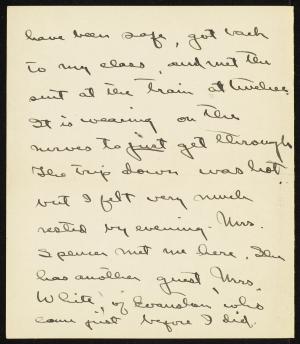 have been safe, got back
to my class, and met the
aunt at the train at twelve.
It is wearing on the
nerves to just get through.
The trip down was hot,
but I felt very much
rested by evening. Mrs.
Spencer met me here. She
has another guest, Mrs.
White, of Evanston, who
came just before I did.